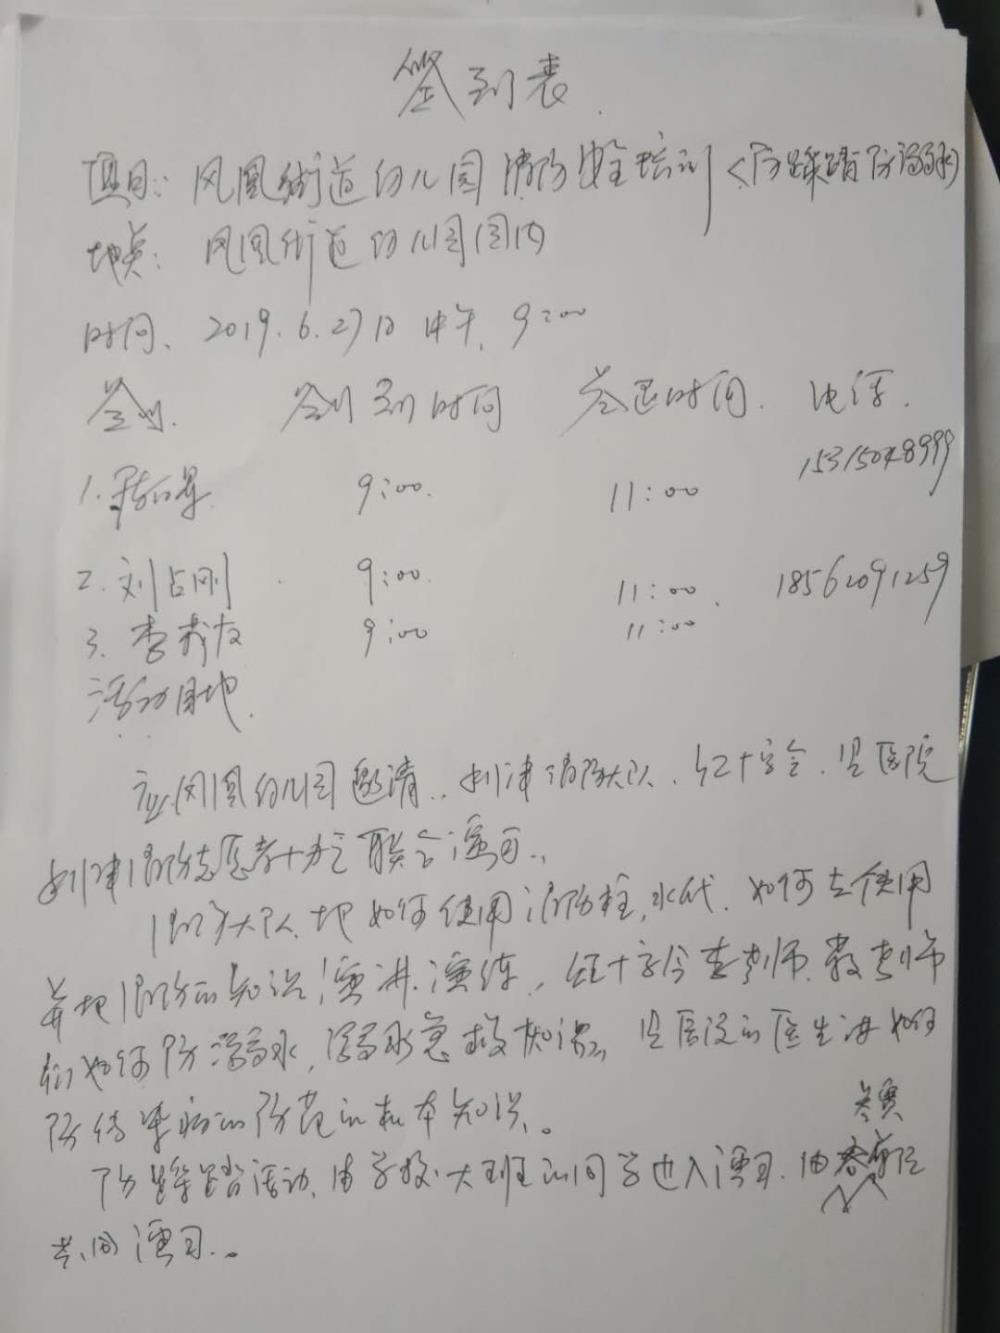 签到表
项目：风凰街道幼儿园消防安全培训<防踩踏防溺水>
地点：风凰街道幼儿园园内
时间、2019.6.27日中午、9:00
签到. 签到时间 签退时间. 电话.
1. 9:00. 11:00 15315048999
2. 刘占刚 9:00. 11:00. 18562091259
3. 李 友 9:00 11:00
活动目地.
应风凰幼儿园邀请..利津消防大队、红十字会.县医院
利津消防志愿者 联合演习..
消防大队地如何使用消防栓,水 . 如何去使用
消防的知识演讲.演练, 红十字会 老师.教老师
们如何防溺水,溺水急救知识. 县医院的医生讲如何
防传染病的防范的 本知识。
参赛
防踩踏活动.由学校.大班的同学 入演习.由
共同演习..